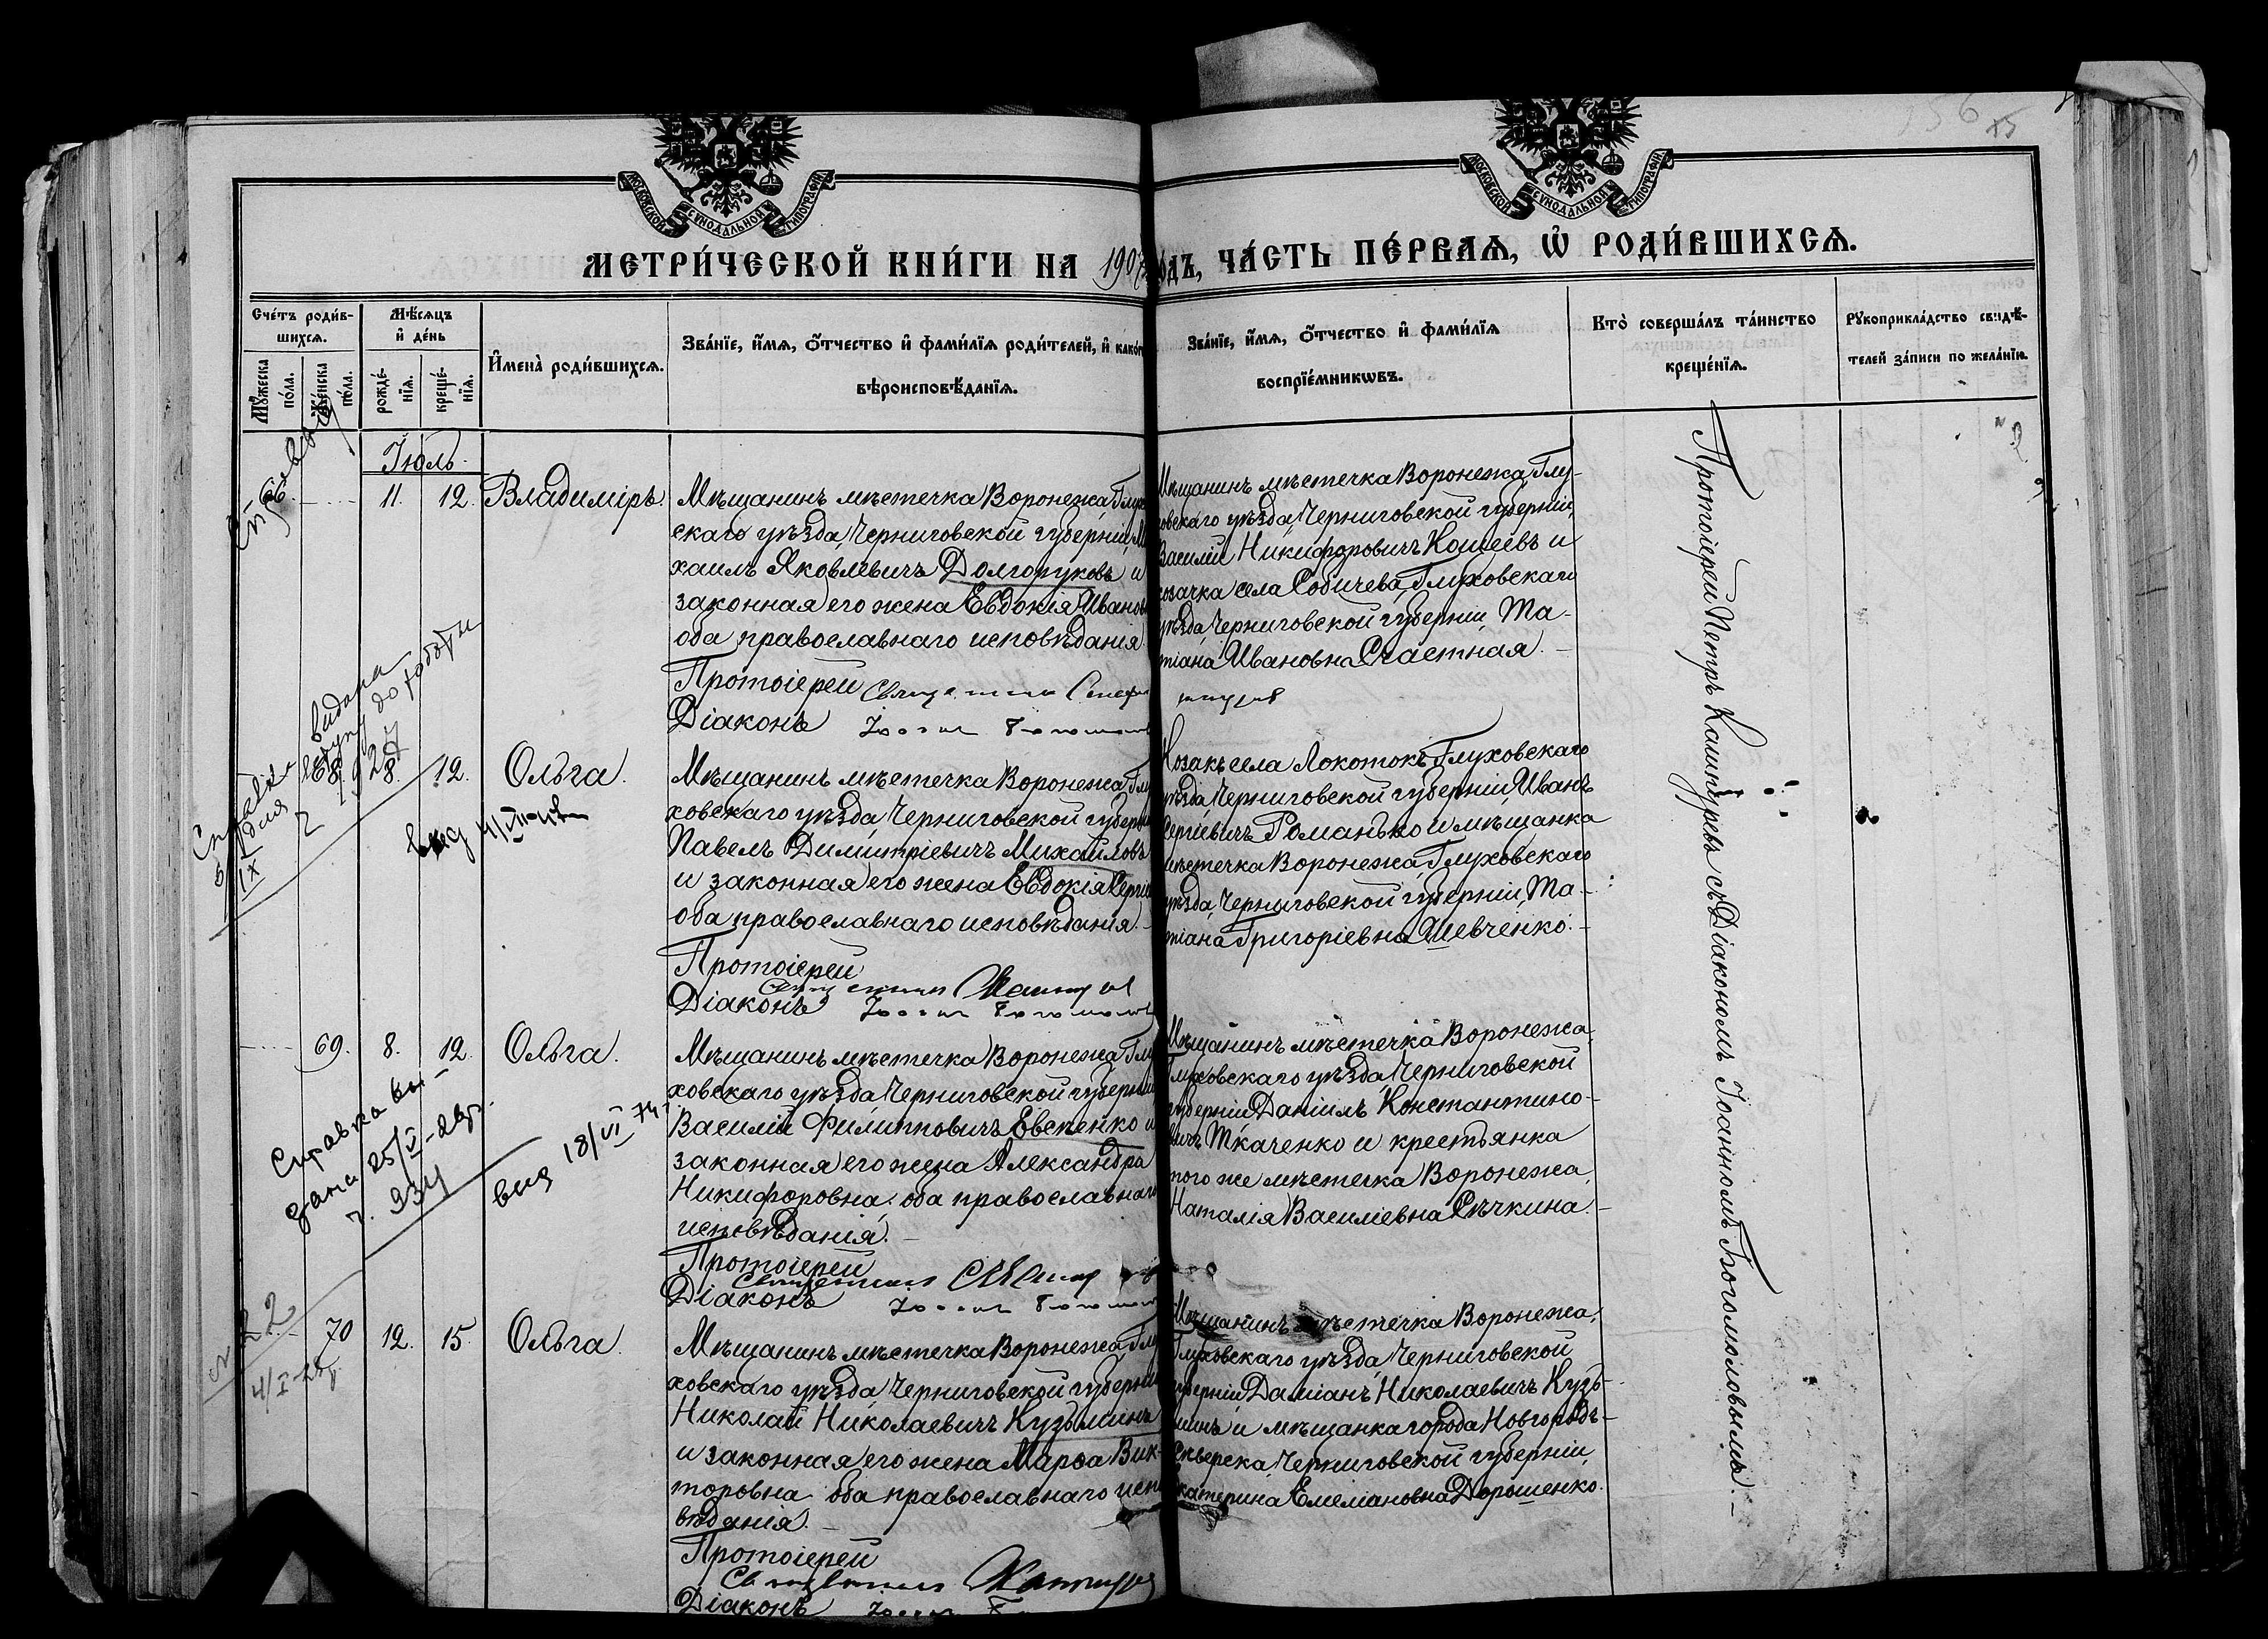 МОСКОВСКОЙ СУНОДАЛЬНОЙ ТИПОГРАФІИ
МОСКОВСКОЙ СУНОДАЛЬНОЙ ТИПОГРАФІИ
156
МЕТРИ́ЧЕСКОЙ КНИ́ГИ НА 190
ЧА́СТЬ ПЕ́РВАѦ, Ѡ҆ РОДИ́ВШИХСѦ.
Сче́тъ роди́в-
шихся.
Мѣ́сяцъ
и҆ де́нь
Му́жеска
по́ла.
Же́нска
по́ла.
рожде́-
нїя.
креще́-
нїя.
И҆мена̀ роди́вшихся.
Зва́нїе, и҆́мя, о҆́тчество и҆ фами́лїя роди́телей, и҆ како́г
вѣроисповѣ́данїя.
Зва́нїе, и҆́мя, о҆́тчество и҆ фами́лїя
воспрїе́мникѡвъ.
Кто̀ соверша́лъ та́инство
креще́нїя.
Рукоприкла́дство свидѣ́-
телей за́писи по жела́нїю.
Іюль.
66.
11. 12. Владиміръ.
Мѣщанинъ мѣстечка Воронежа, Глухов
скаго уѣзда, Черниговской губерніи, Ми
хаилъ Яковлевичъ Долгоруковъ и
законная его жена Евдокія Иванов
оба православнаго исповѣданія.
Протоіерей
Діаконъ
Мѣщанинъ мѣстечка Воронежа, Глу-
ховскаго уѣзда, Черниговской губерніи,
Василій Никифоровичъ Кошеевъ и
козачка села Собичева, Глуховскаго
уѣзда, Черниговской губерніи, Та-
тіана Ивановна Счастная. –
Справка видана
для до роботи
5/IX 1927
68. 8. 12. Ольга.
Мѣщанинъ мѣстечка Воронежа, Глу
ховскаго уѣзда Черниговской губерн
Павелъ Димитріевичъ Михайловъ
и законная его жена Евдокія Сергіев
оба православнаго исповѣданія. –
Протоіерей
Діаконъ
Козакъ села Локотокъ, Глуховскаго
уѣзда, Черниговской губерніи, Иванъ
Сергіевичъ Романько и мѣщанка
мѣстечка Воронежа, Глуховскаго
уѣзда, Черниговской губерніи, Та-
тіана Григоріевна Шевченко. –
69. 8. 12. Ольга.
Справка вы-
дана 25/V – 2
г. 934
18/VI 74
Мѣщанинъ мѣстечка Воронежа Глу
ховскаго уѣзда Черниговской губерніи
Василій Филипповичъ Евсѣенко и
законная его жена Александра
Никифоровна оба православнаго
исповѣданія. –
Протоіерей
Діаконъ
Мѣщанинъ мѣстечка Воронежа,
Глуховскаго уѣзда Черниговской
губерніи Даніилъ Константино-
вичъ Ткаченко и крестьянка
того же мѣстечка Воронежа,
Наталія Василіевна Сѣчкина. –
22
70 12. 15. Ольга.
Мѣщанинъ мѣстечка Воронежа Глу
ховскаго уѣзда, Черниговской губерні
Николай Николаевичъ Кузьминъ
и законная его жена Марѳа Вик-
торовна оба православнаго испо
вѣданія. –
Протоіерей
Діаконъ
Мѣщанинъ мѣстечка Воронежа,
Глуховскаго уѣзда, Черниговской
губерніи Даміанъ Николаевичъ Кузь-
минъ и мѣщанка города Новгородъ-
Сѣверска, Черниговской губерніи,
Екатерина Емеліановна Дорошенко.
Протоіерей Петръ Кашпуревъ съ Діакономъ Іоанномъ Богомоловымъ. –